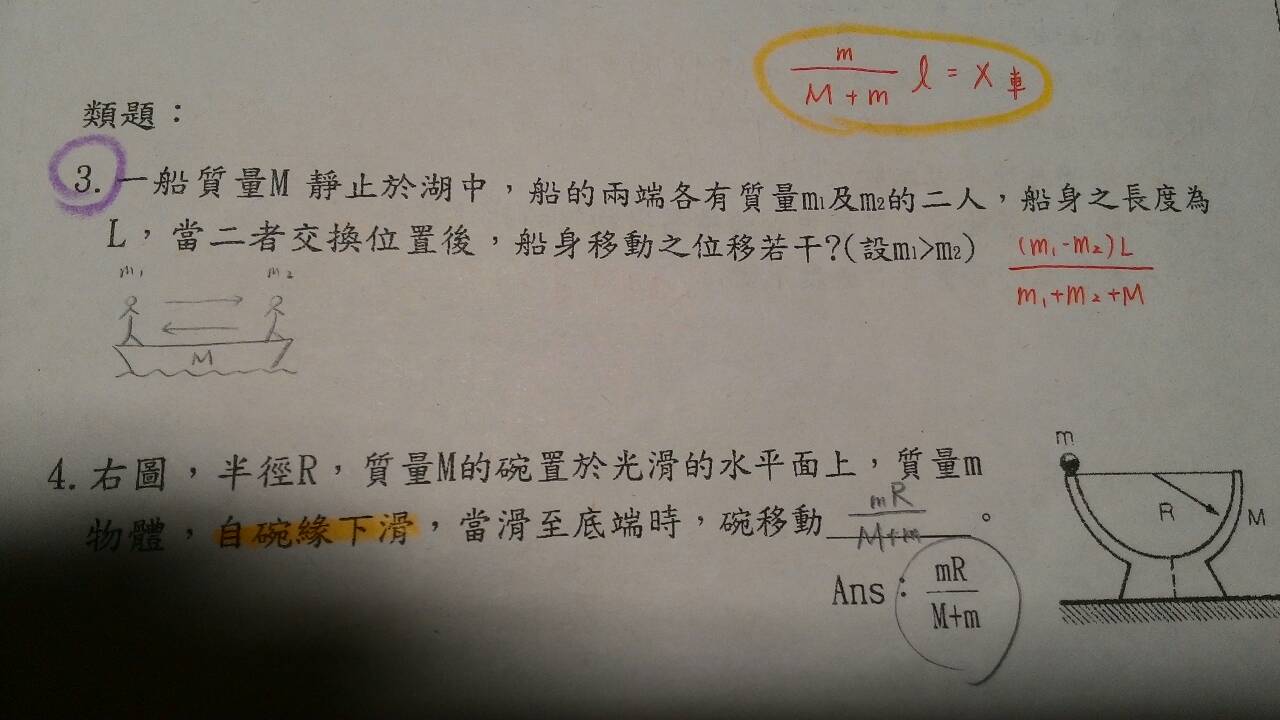 m
M+m l = x車
類題：
3. 一船質量M 靜止於湖中，船的兩端各有質量m₁及m₂的二人，船身之長度為
L，當二者交換位置後，船身移動之位移若干?(設m₁>m₂) (m₁-m₂)L
m₁+m₂+M
m₁ m₂
M
4. 右圖，半徑R，質量M的碗置於光滑的水平面上，質量m
物體，自碗緣下滑，當滑至底端時，碗移動 mR
M+m 。
Ans： mR
M+m
m
R
M